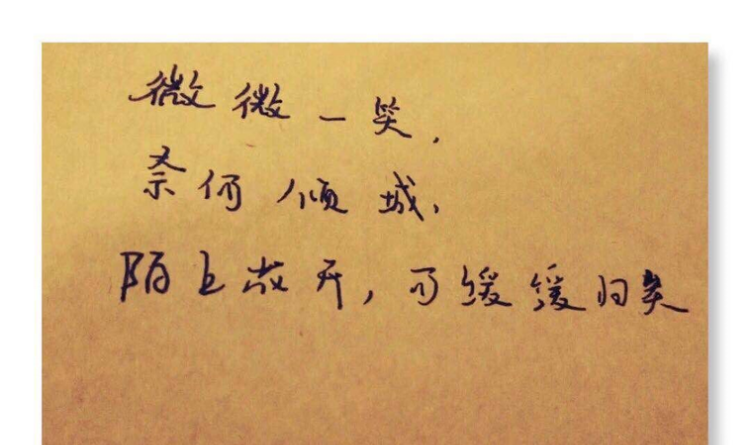 微微一笑,
奈何倾城,
陌上花开,可缓缓归矣